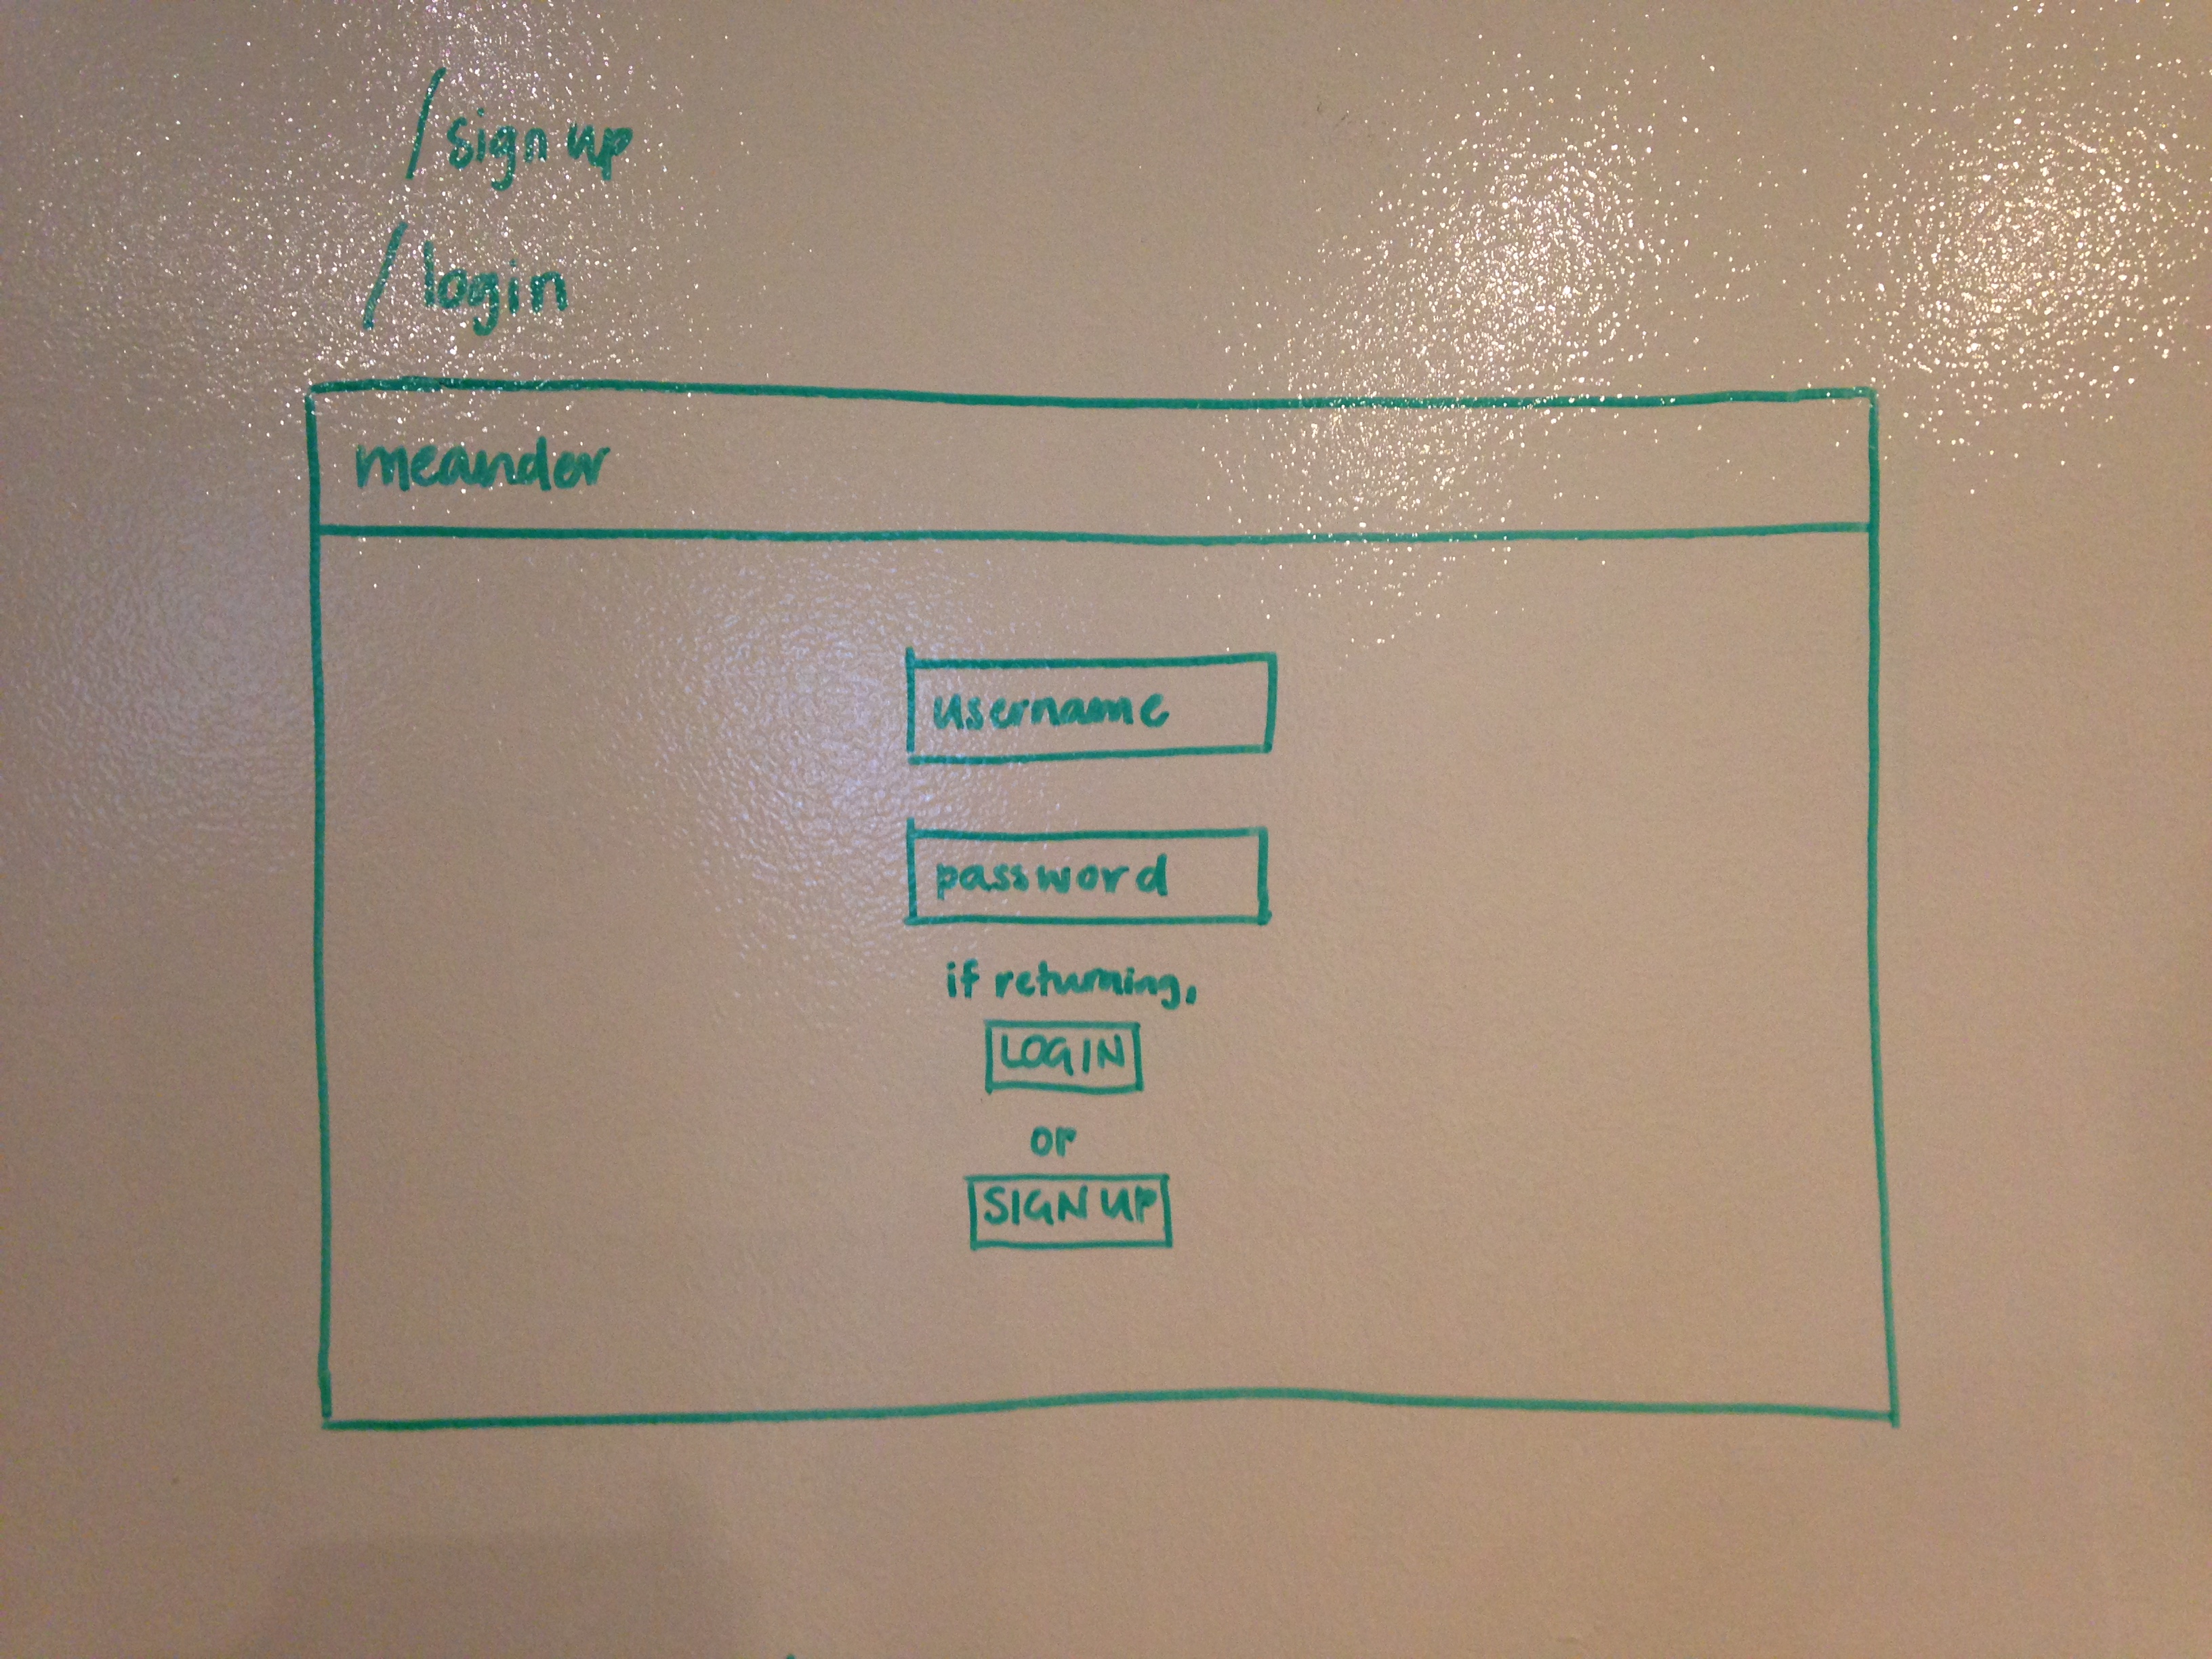 /sign up
/login
meander
username
password
if returning,
LOGIN
or
SIGN UP